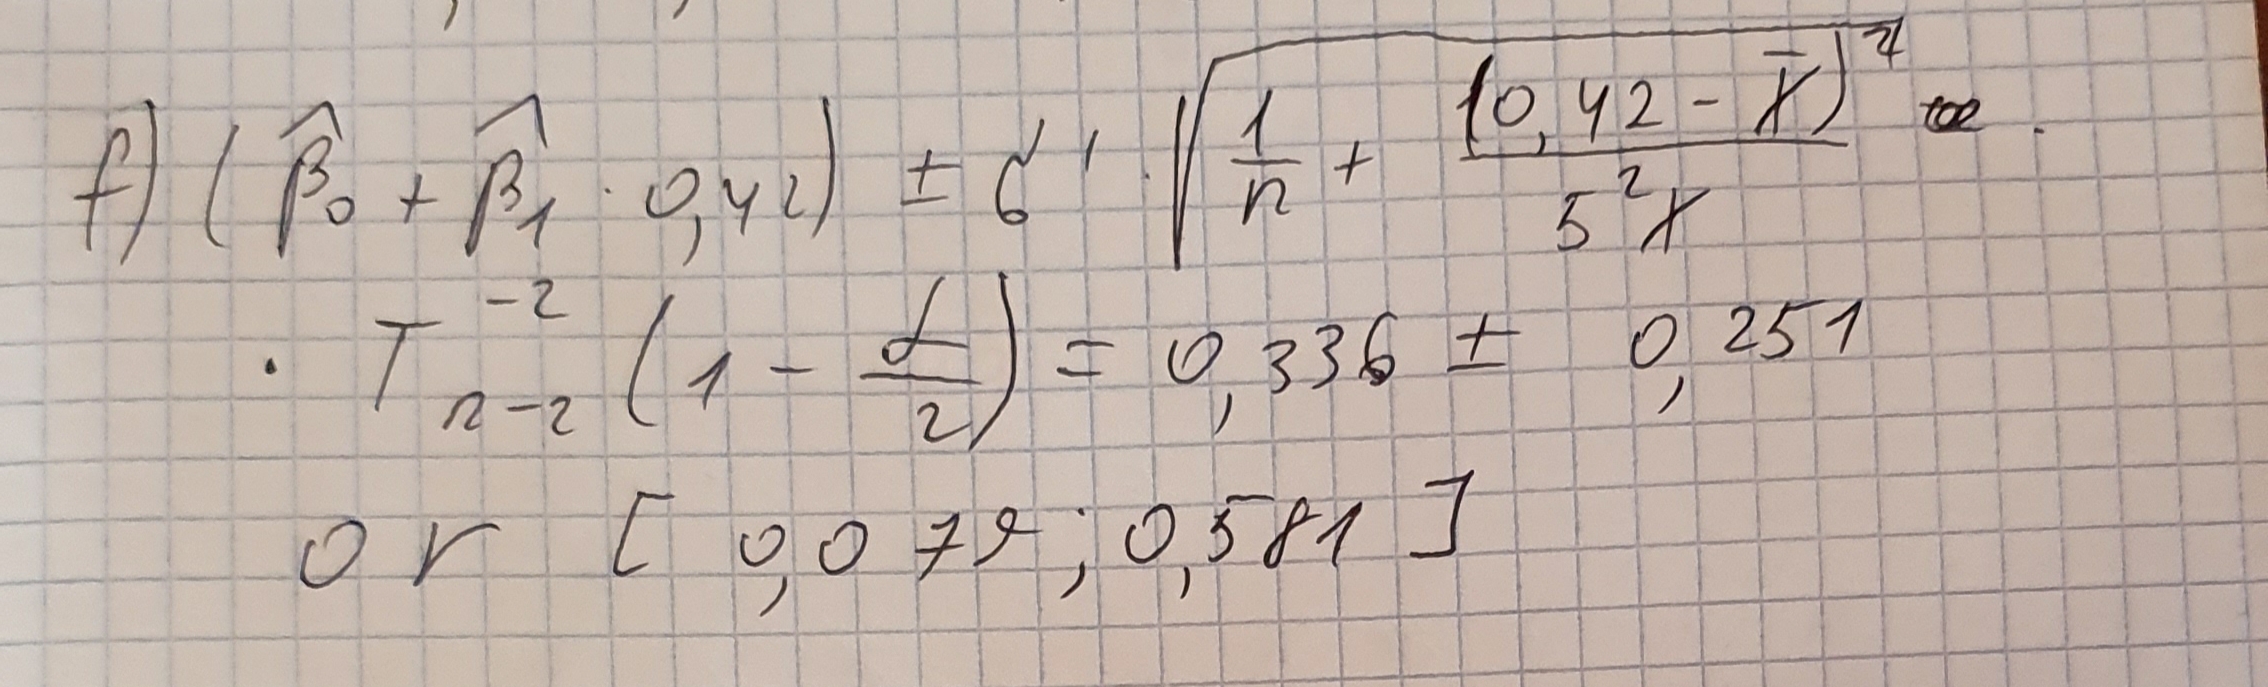 f) (β̂₀ + β̂₁ · 0,42) ± σ' · √(1/n + (0,42 - x̄)²/s²x) ·
· T⁻²ₙ₋₂ (1 - α/2) = 0,336 ± 0,251
or [0,079; 0,581]